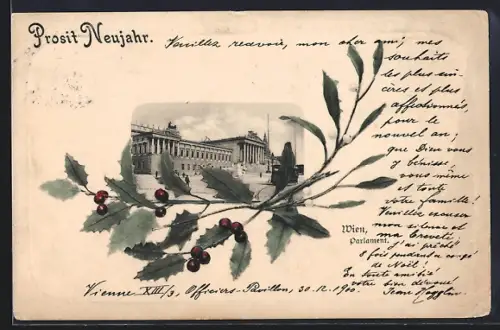 Prosit Neujahr.
Veuillez recevoir, mon cher ami, mes
souhaits
les plus sin-
cères et plus
affectionnés,
pour le
nouvel an;
que Dieu vous
y bénisse,
vous même
et toute
votre famille!
Veuillez excuser
mon silence et
ma
J'ai prêché
5 fois pendant
de Noël!
En toute amitié
votre bien dévoué
Jean
Wien,
Parlament.
Vienne XIII/3, Officiers-Pavillon, 30.12.1900.